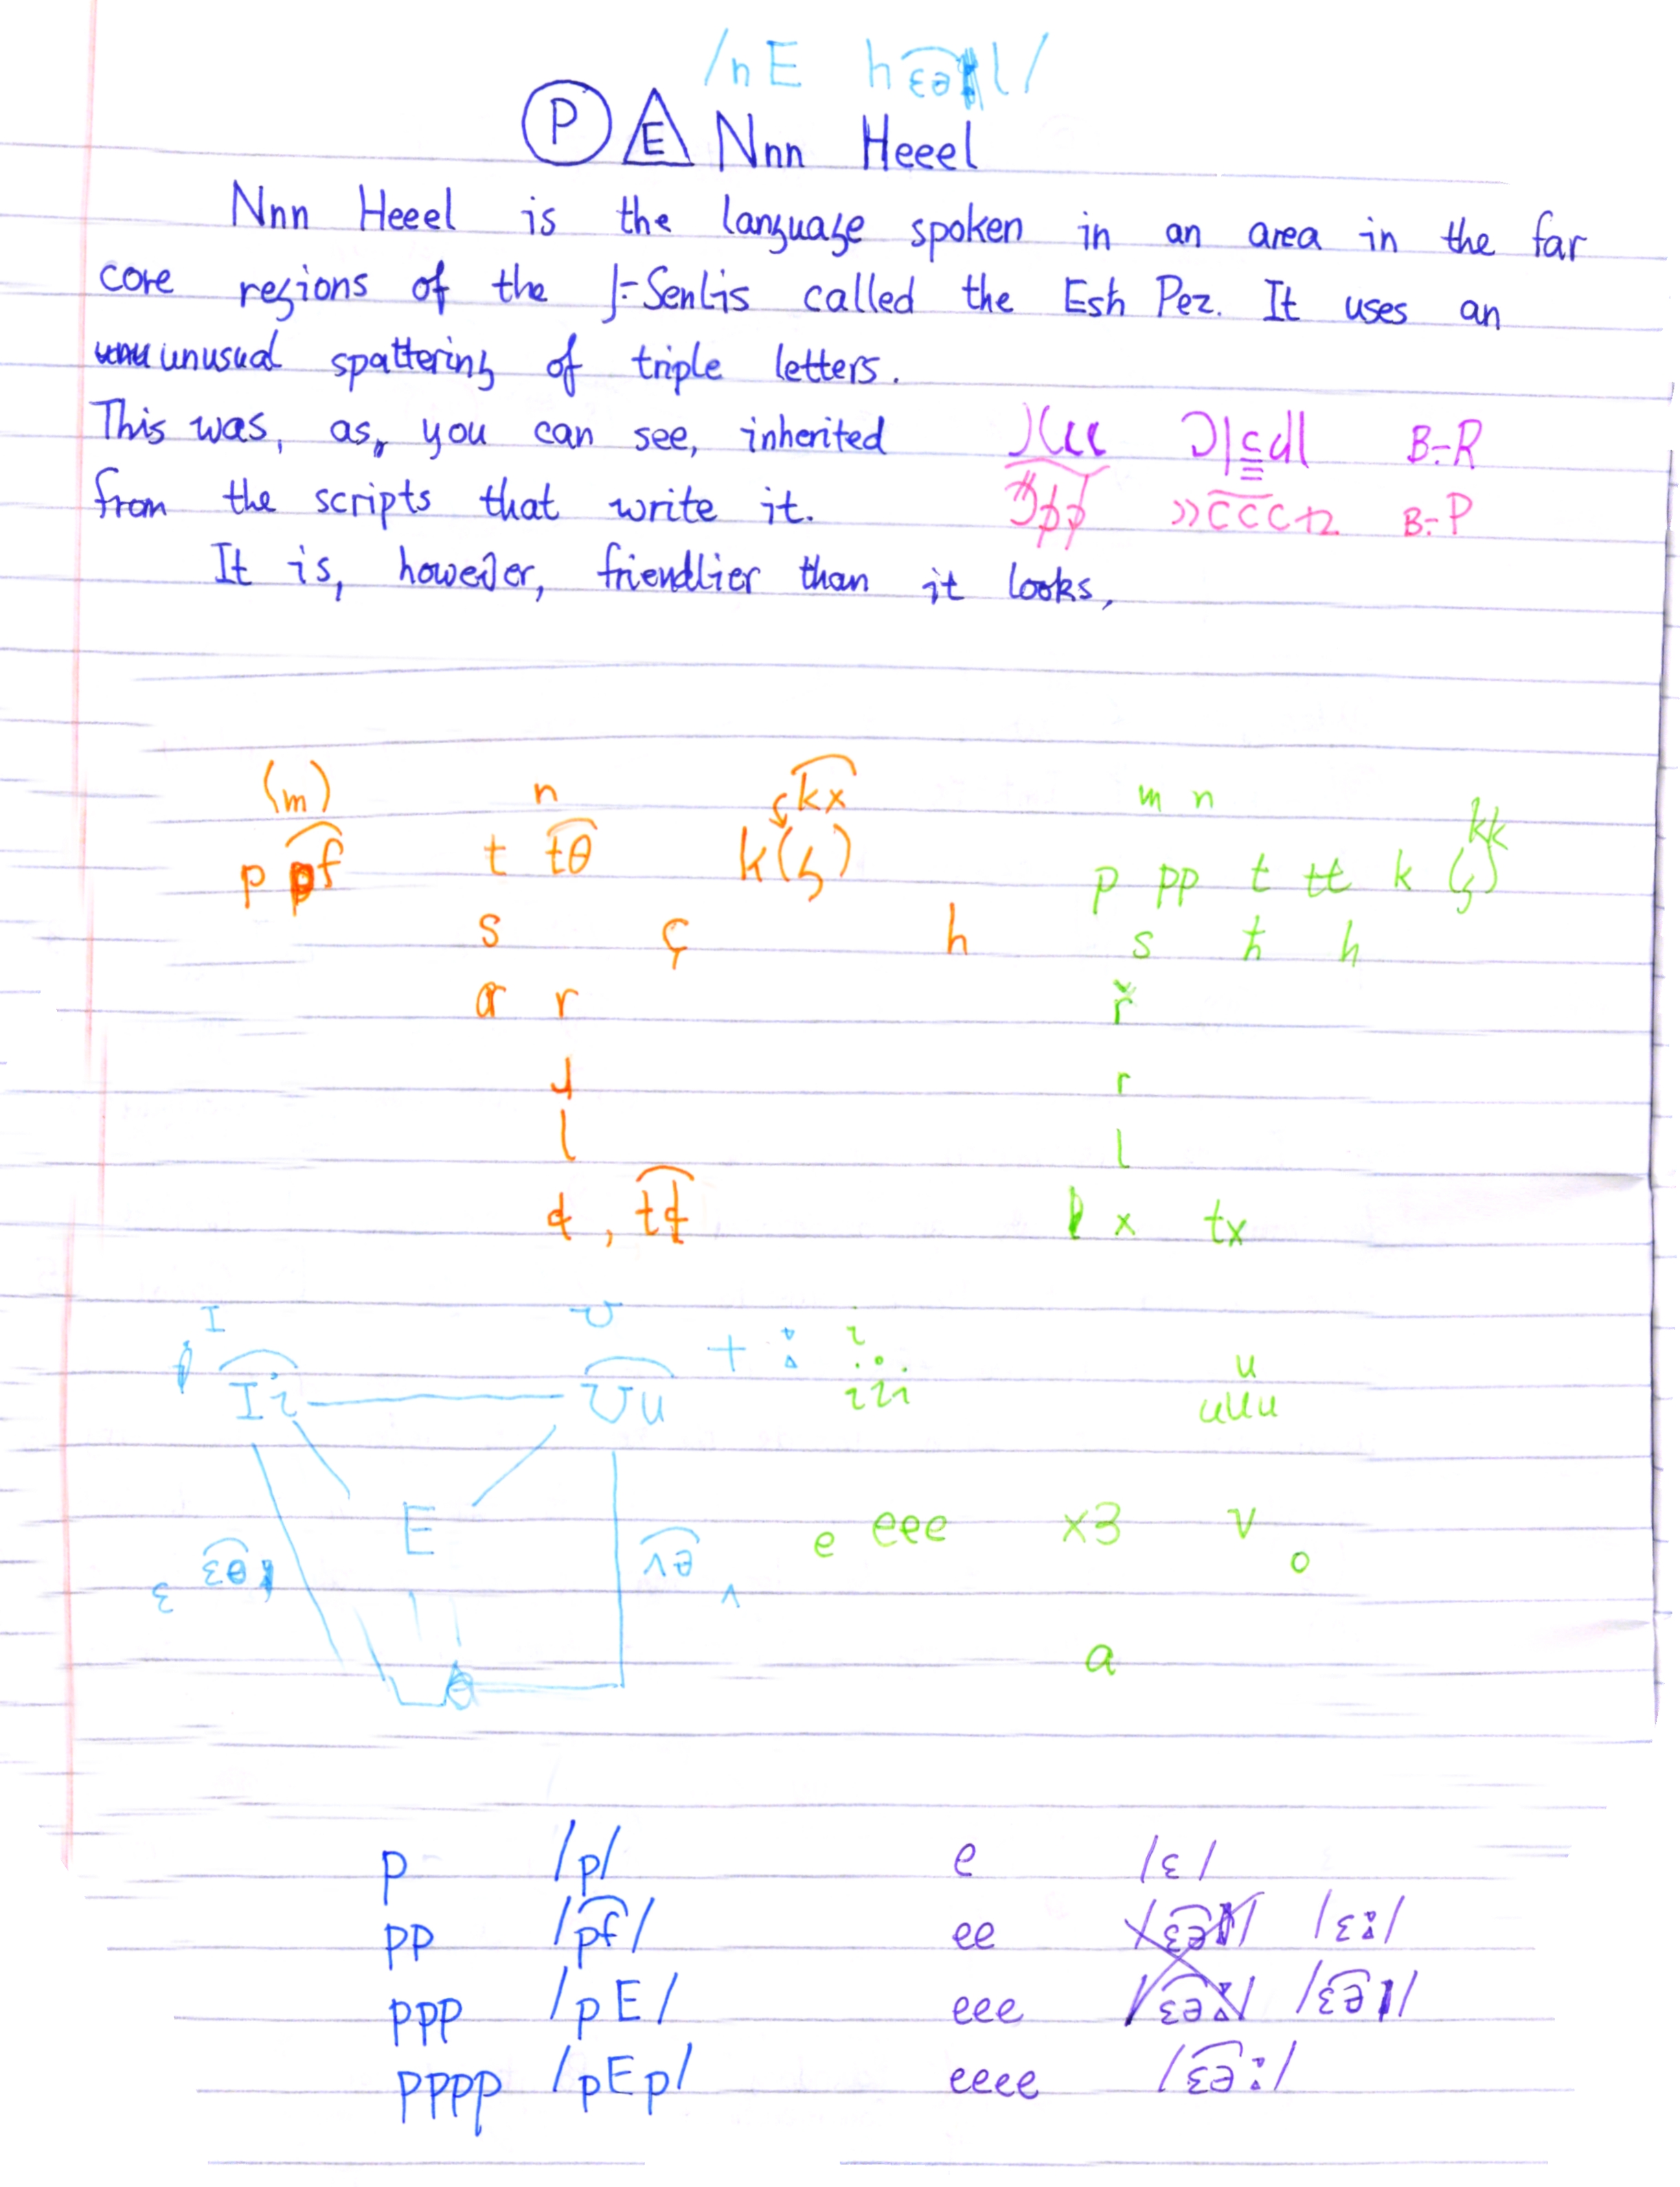 /nE h l/
P E Nnn Heeel
Nnn Heeel is the language spoken in an area in the far
core regions of the called the Esh Pez. It uses an
unusual spattering of triple letters.
This was, as, you can see, inherited
from the scripts that write it.
B-R
B-P
It is, however, friendlier than it looks,
(m) n k͡x m n
p p͡f t t͡θ k(ɕ) p pp t tt k kk
s ç h s ħ h
r ř
ɹ r
l l
ɬ, t͡ɬ x tx
I ʊ + ː i u
I͡i ʊ͡u iii uuu
E e eee x3 v o
ɛ ʌ
a
p /p/ e /ɛ/
pp /p͡f/ ee /ɛː/
ppp /pE/ eee /ɛ͡ɘ/
pppp /pEp/ eeee /ɛ͡ɘː/